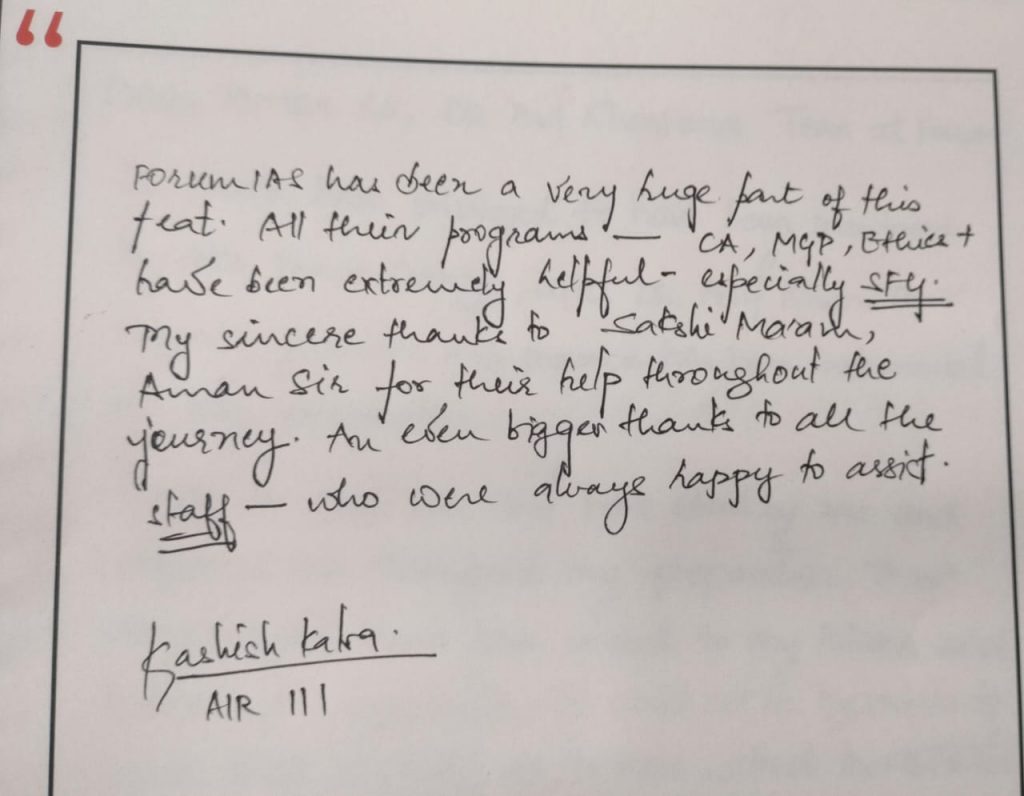 “
FORUMIAS has been a very huge part of this
feat. All their programs — CA, MGP, Ethics+
have been extremely helpful - especially SFG.
My sincere thanks to Sakshi Ma'am,
Aman Sir for their help throughout the
journey. An even bigger thanks to all the
staff — who were always happy to assist.
Kashish Kalra.
AIR 111